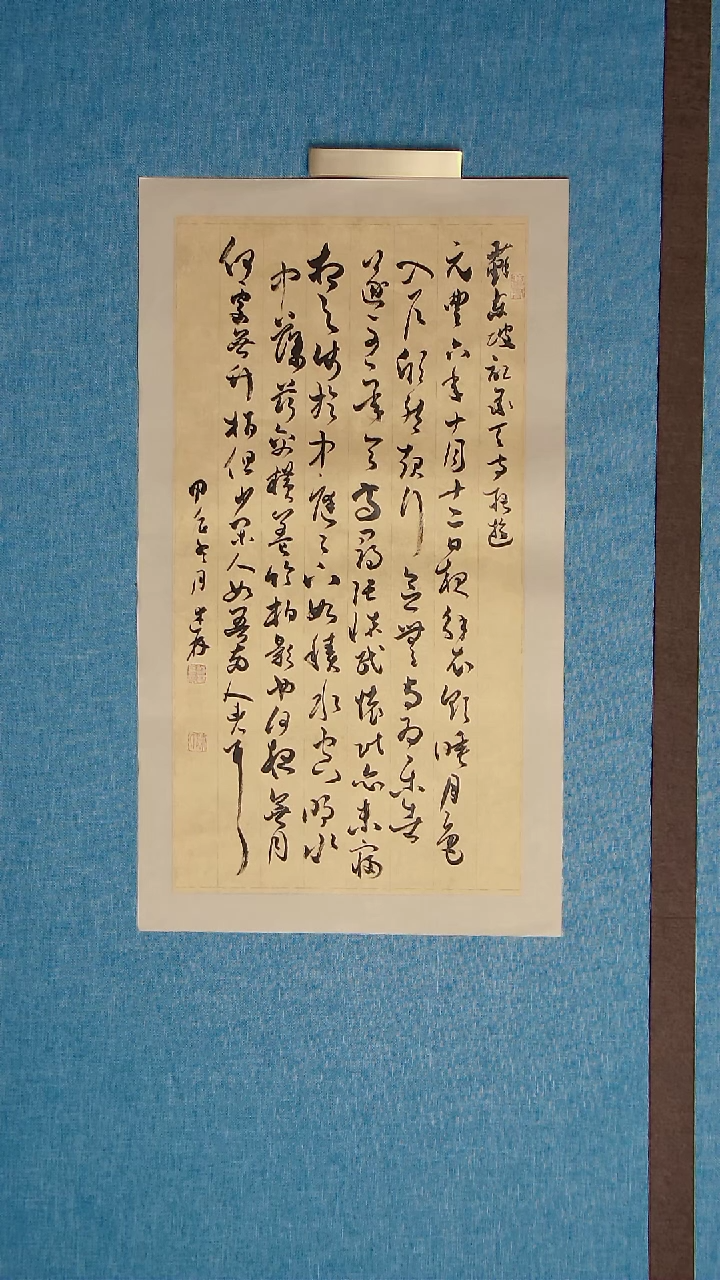 蘇東坡記承天寺夜遊
元豐六年十月十二日夜解衣欲睡月色
入戶欣然起行念無與為樂者
遂至承天寺尋張懷民懷民亦未寢
相與步於中庭庭下如積水空明水
中藻荇交橫蓋竹柏影也何夜無月
何處無竹柏但少閑人如吾兩人者耳
甲辰月